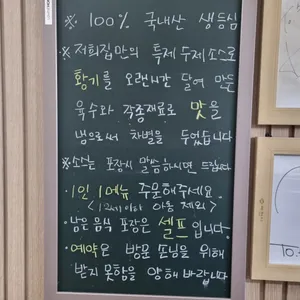 ※ 100% 국내산 생등심
※ 저희집만의 특제 수제소스로
황기를 오랜시간 달여 만든
육수와 각종재료로 맛을
냄으로써 차별을 두었습니다
※소스는 포장시 말씀하시면 드립니다
·1인 1메뉴 주문해주세요.
(12세이하 아동 제외)
·남은 음식 포장은 셀프입니다.
·예약은 방문 손님을 위해
받지 못함을 양해 바랍니다